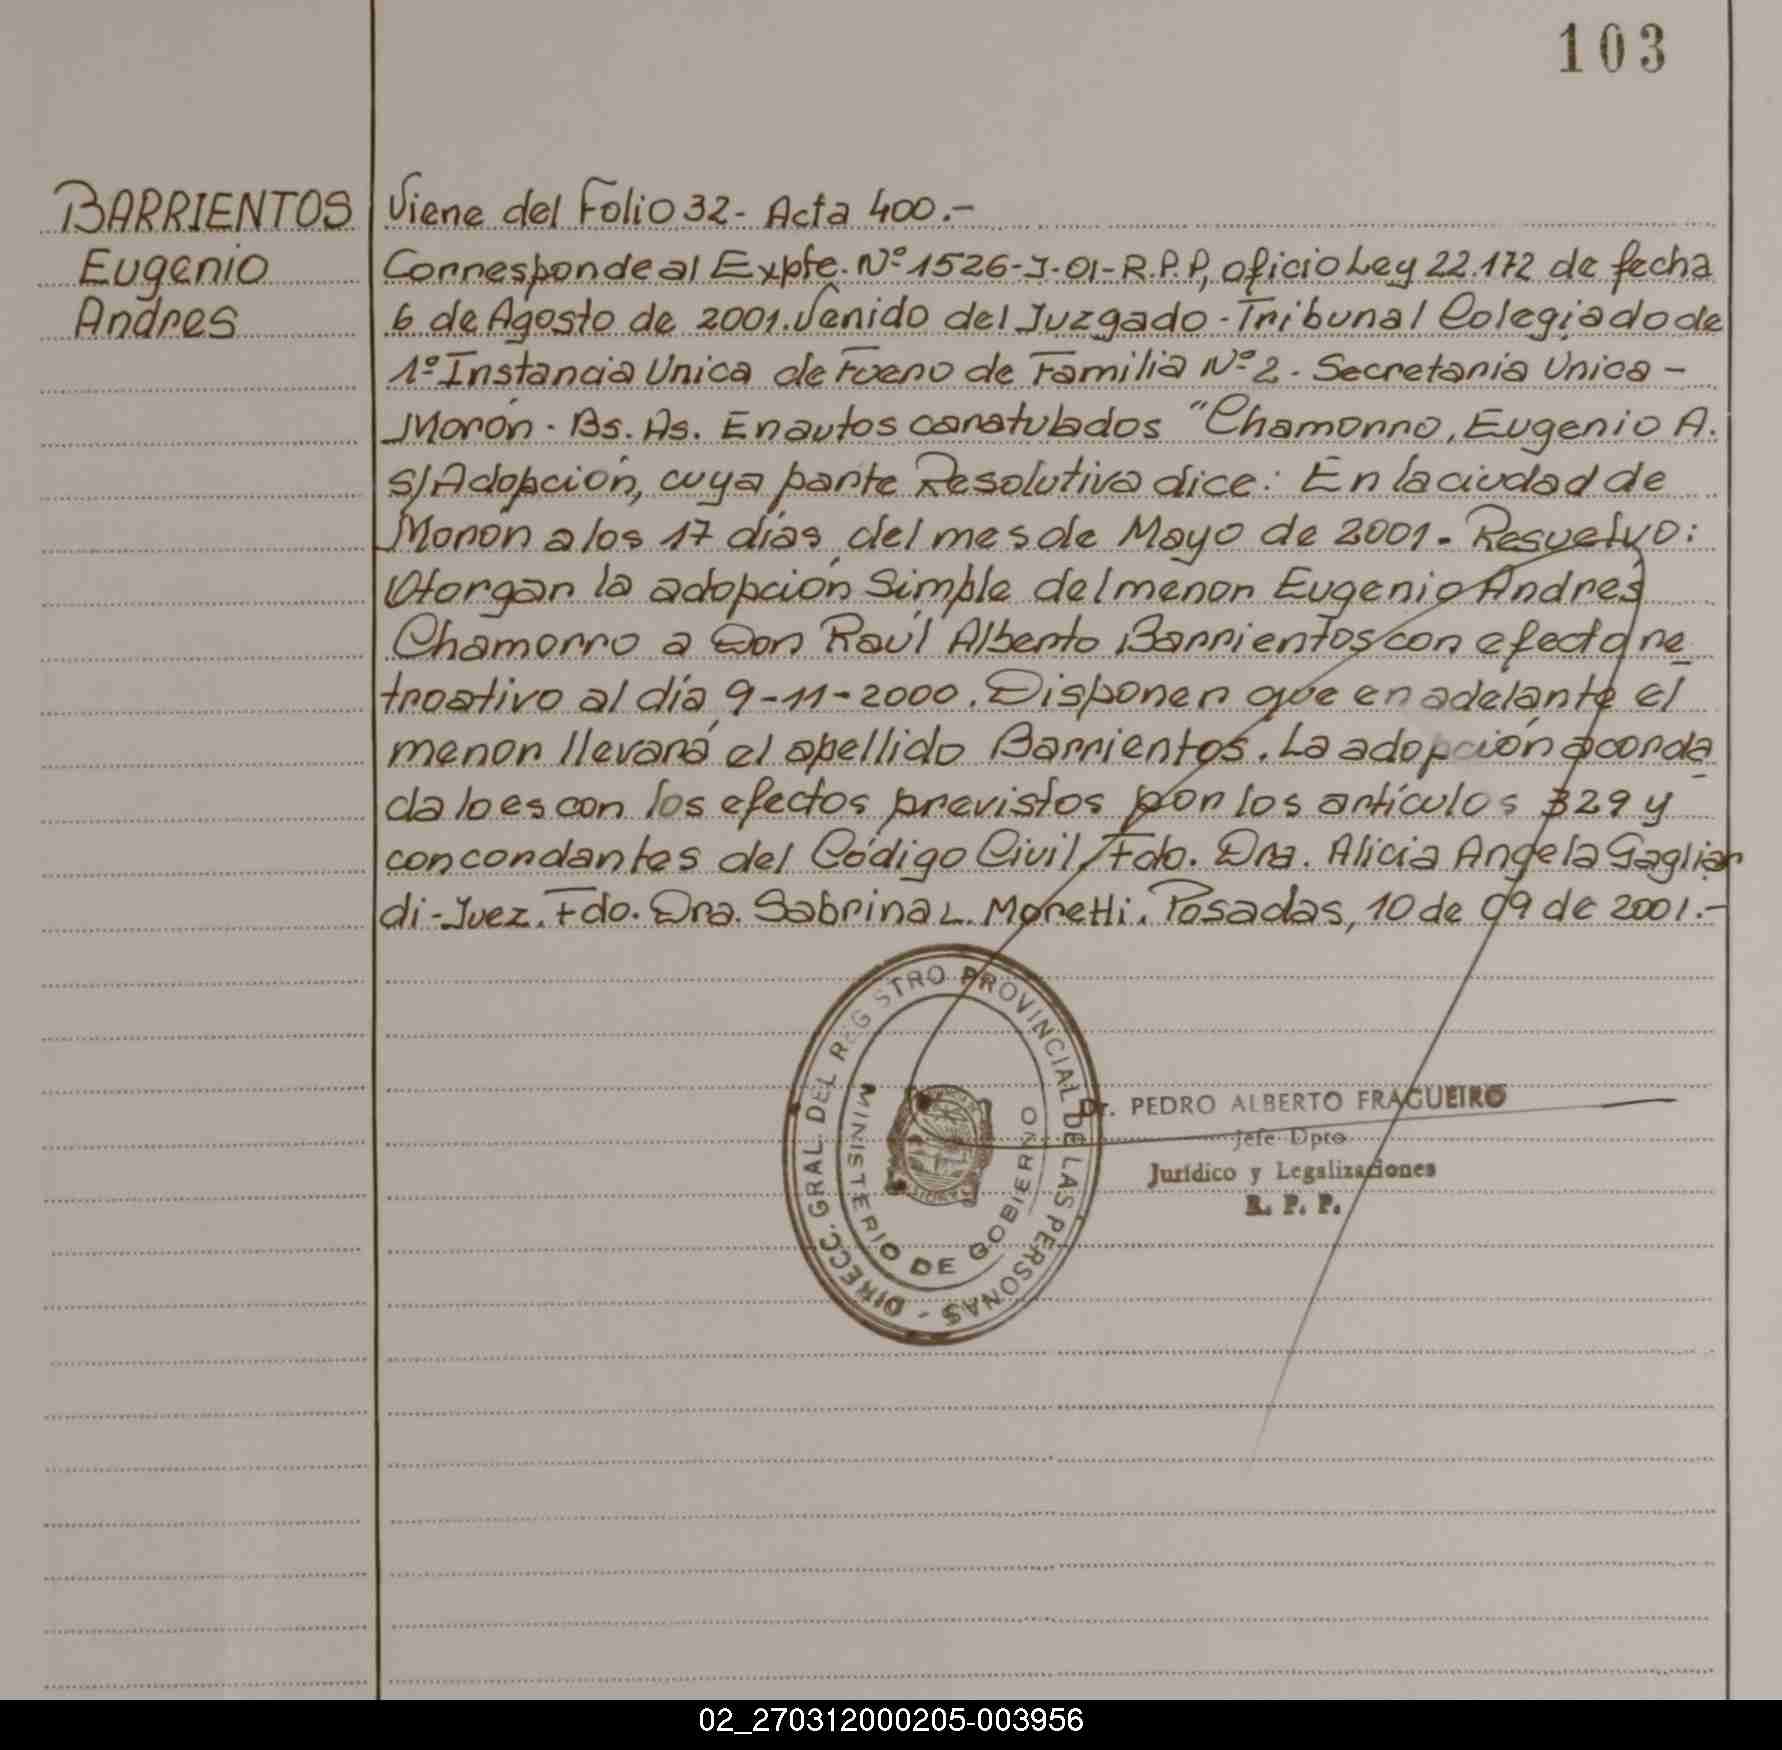 103
BARRIENTOS
Eugenio
Andres
Viene del Folio 32- Acta 400.-
Corresponde al Expte. Nº 1526-J-01-R.P.P, oficio Ley 22.172 de fecha
6 de Agosto de 2001. Venido del Juzgado - Tribunal Colegiado de
1º Instancia Unica de Fuero de Familia Nº 2 - Secretaria Unica -
Morón - Bs. As. En autos caratulados "Chamorro, Eugenio A.
s/Adopción, cuya parte Resolutiva dice: En la ciudad de
Morón a los 17 días del mes de Mayo de 2001. Resuelvo:
Otorgar la adopción Simple del menor Eugenio Andrés
Chamorro a Don Raúl Alberto Barrientos con efecto re
troativo al día 9-11-2000. Disponer que en adelante el
menor llevará el apellido Barrientos. La adopción acorda
da lo es con los efectos previstos por los artículos 329 y
concordantes del Código Civil. Fdo. Dra. Alicia Angela Gagliar
di - Juez. Fdo. Dra. Sabrina L. Moretti. Posadas, 10 de 09 de 2001.-
DIRECC. GRAL DEL REGISTRO PROVINCIAL DE LAS PERSONAS -
MINISTERIO DE GOBIERNO
Dr. PEDRO ALBERTO FRAGUEIRO
Jefe Dpto
Jurídico y Legalizaciones
R. P. P.
02_270312000205-003956